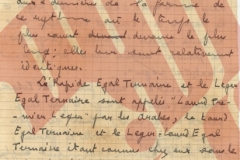 aux dessus de la forme de
ce rythme où le temps le
plus court durant le plus
long; elles leur sont relativement
identiques.
Le Rapide Egal Ternaire et le Léger
Egal Ternaire sont appelés "Lourd
mier Léger" par les Arabes, le Lourd
Egal Ternaire et le Léger Lourd Egal
Ternaire étant connus chez eux sous le